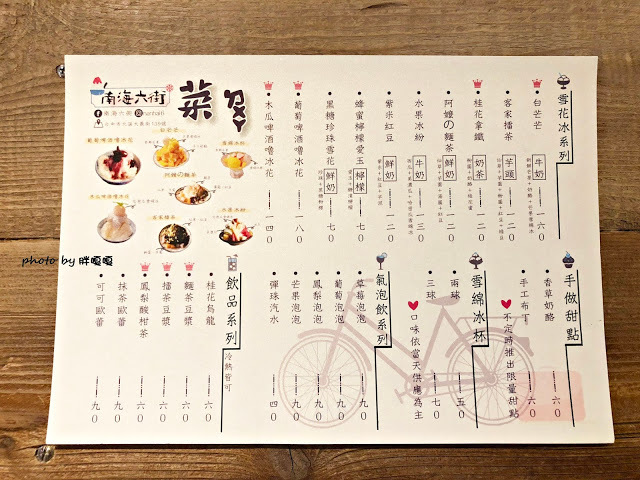 南海六街
南海六街
菜單
雪花冰系列
白芒芒 牛奶 一六〇
客家擂茶 芋頭 一二〇
桂花拿鐵 奶茶 一二〇
阿嬤の麵茶 鮮奶 一二〇
水果冰粉 牛奶 一三〇
紫米紅豆 鮮奶 一二〇
蜂蜜檸檬愛玉 檸檬 七〇
黑糖珍珠雪花 鮮奶 七〇
葡萄啤酒嚕冰花 一八〇
木瓜啤酒嚕冰花 一四〇
手做甜點
香草奶酪 六〇
手工布丁 六〇
不定時推出限量甜點
雪綿冰杯
兩球 五〇
三球 七〇
口味依當天供應為主
氣泡飲系列
草莓泡泡 九〇
葡萄泡泡 九〇
鳳梨泡泡 九〇
芒果泡泡 九〇
彈珠汽水 四〇
飲品系列
冷熱皆可
桂花烏龍 六〇
麵茶豆漿 六〇
擂茶豆漿 六〇
鳳梨酸柑茶 六〇
抹茶歐蕾 九〇
可可歐蕾 九〇
白芒芒
阿嬤の麵茶
photo by 胖嘎嘎